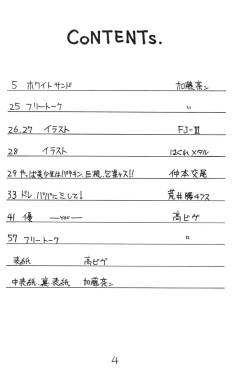 CONTENTS.
5 ホワイトサンド 加藤茶ン
25 フリートーク 〃
26.27 イラスト FJ-II
28 イラスト はぐれメタル
29 やっぱ美少女はパツキン、巨乳、包茎ッス!! 仲本交尾
33 ドレ、パパにミして! 荒井勝4フス
41 優 ―YOU― 高ピゲ
57 フリートーク 〃
表紙 高ピゲ
中表紙、裏表紙 加藤茶ン
4